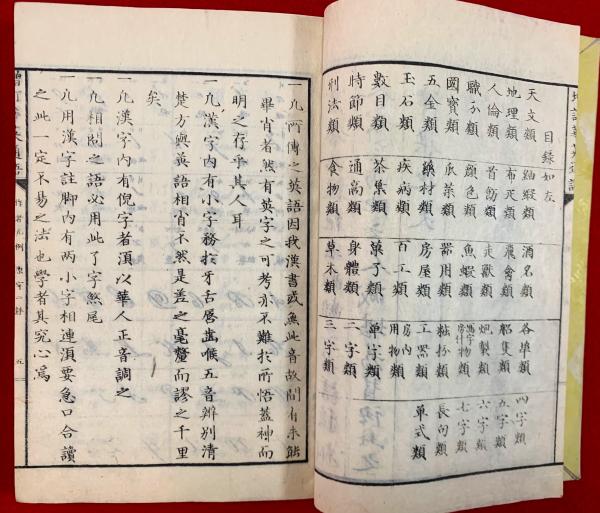 增訂華英通語
目錄如左
天文類 地理類 人倫類 職分類 國寶類 五金類 玉石類 數目類 時節類 刑法類
紬緞類 布疋類 首飾類 顏色類 瓜菜類 藥材類 疾病類 茶葉類 通商類 食物類
酒名類 飛禽類 走獸類 魚蝦類 器用類 房屋類 百工類 菓子類 身體類 草木類
各埠類 船隻類 炮製類 寫字房什物類 粧扮類 工器類 房內用物類 單字類 二字類 三字類
四字類 五字類 六字類 七字類 長句類 單式類
一凡所傳之英語因我漢書或無此音故間有未能
畢肖者然有英字之可考亦不難於所悟蓋神而
明之存乎其人耳
一凡漢字內有小字務於牙舌唇齒喉五音辨別清
楚方與英語相肖不然是差之毫釐而謬之千里
矣
一凡漢字內有倪字者須以華人正音調之
一凡相問之語必用此了字煞尾
一凡用漢字註脚內有两小字相連須要急口合讀
之此一定不易之法也學者其究心焉
增訂華英通語
作者凡例
五